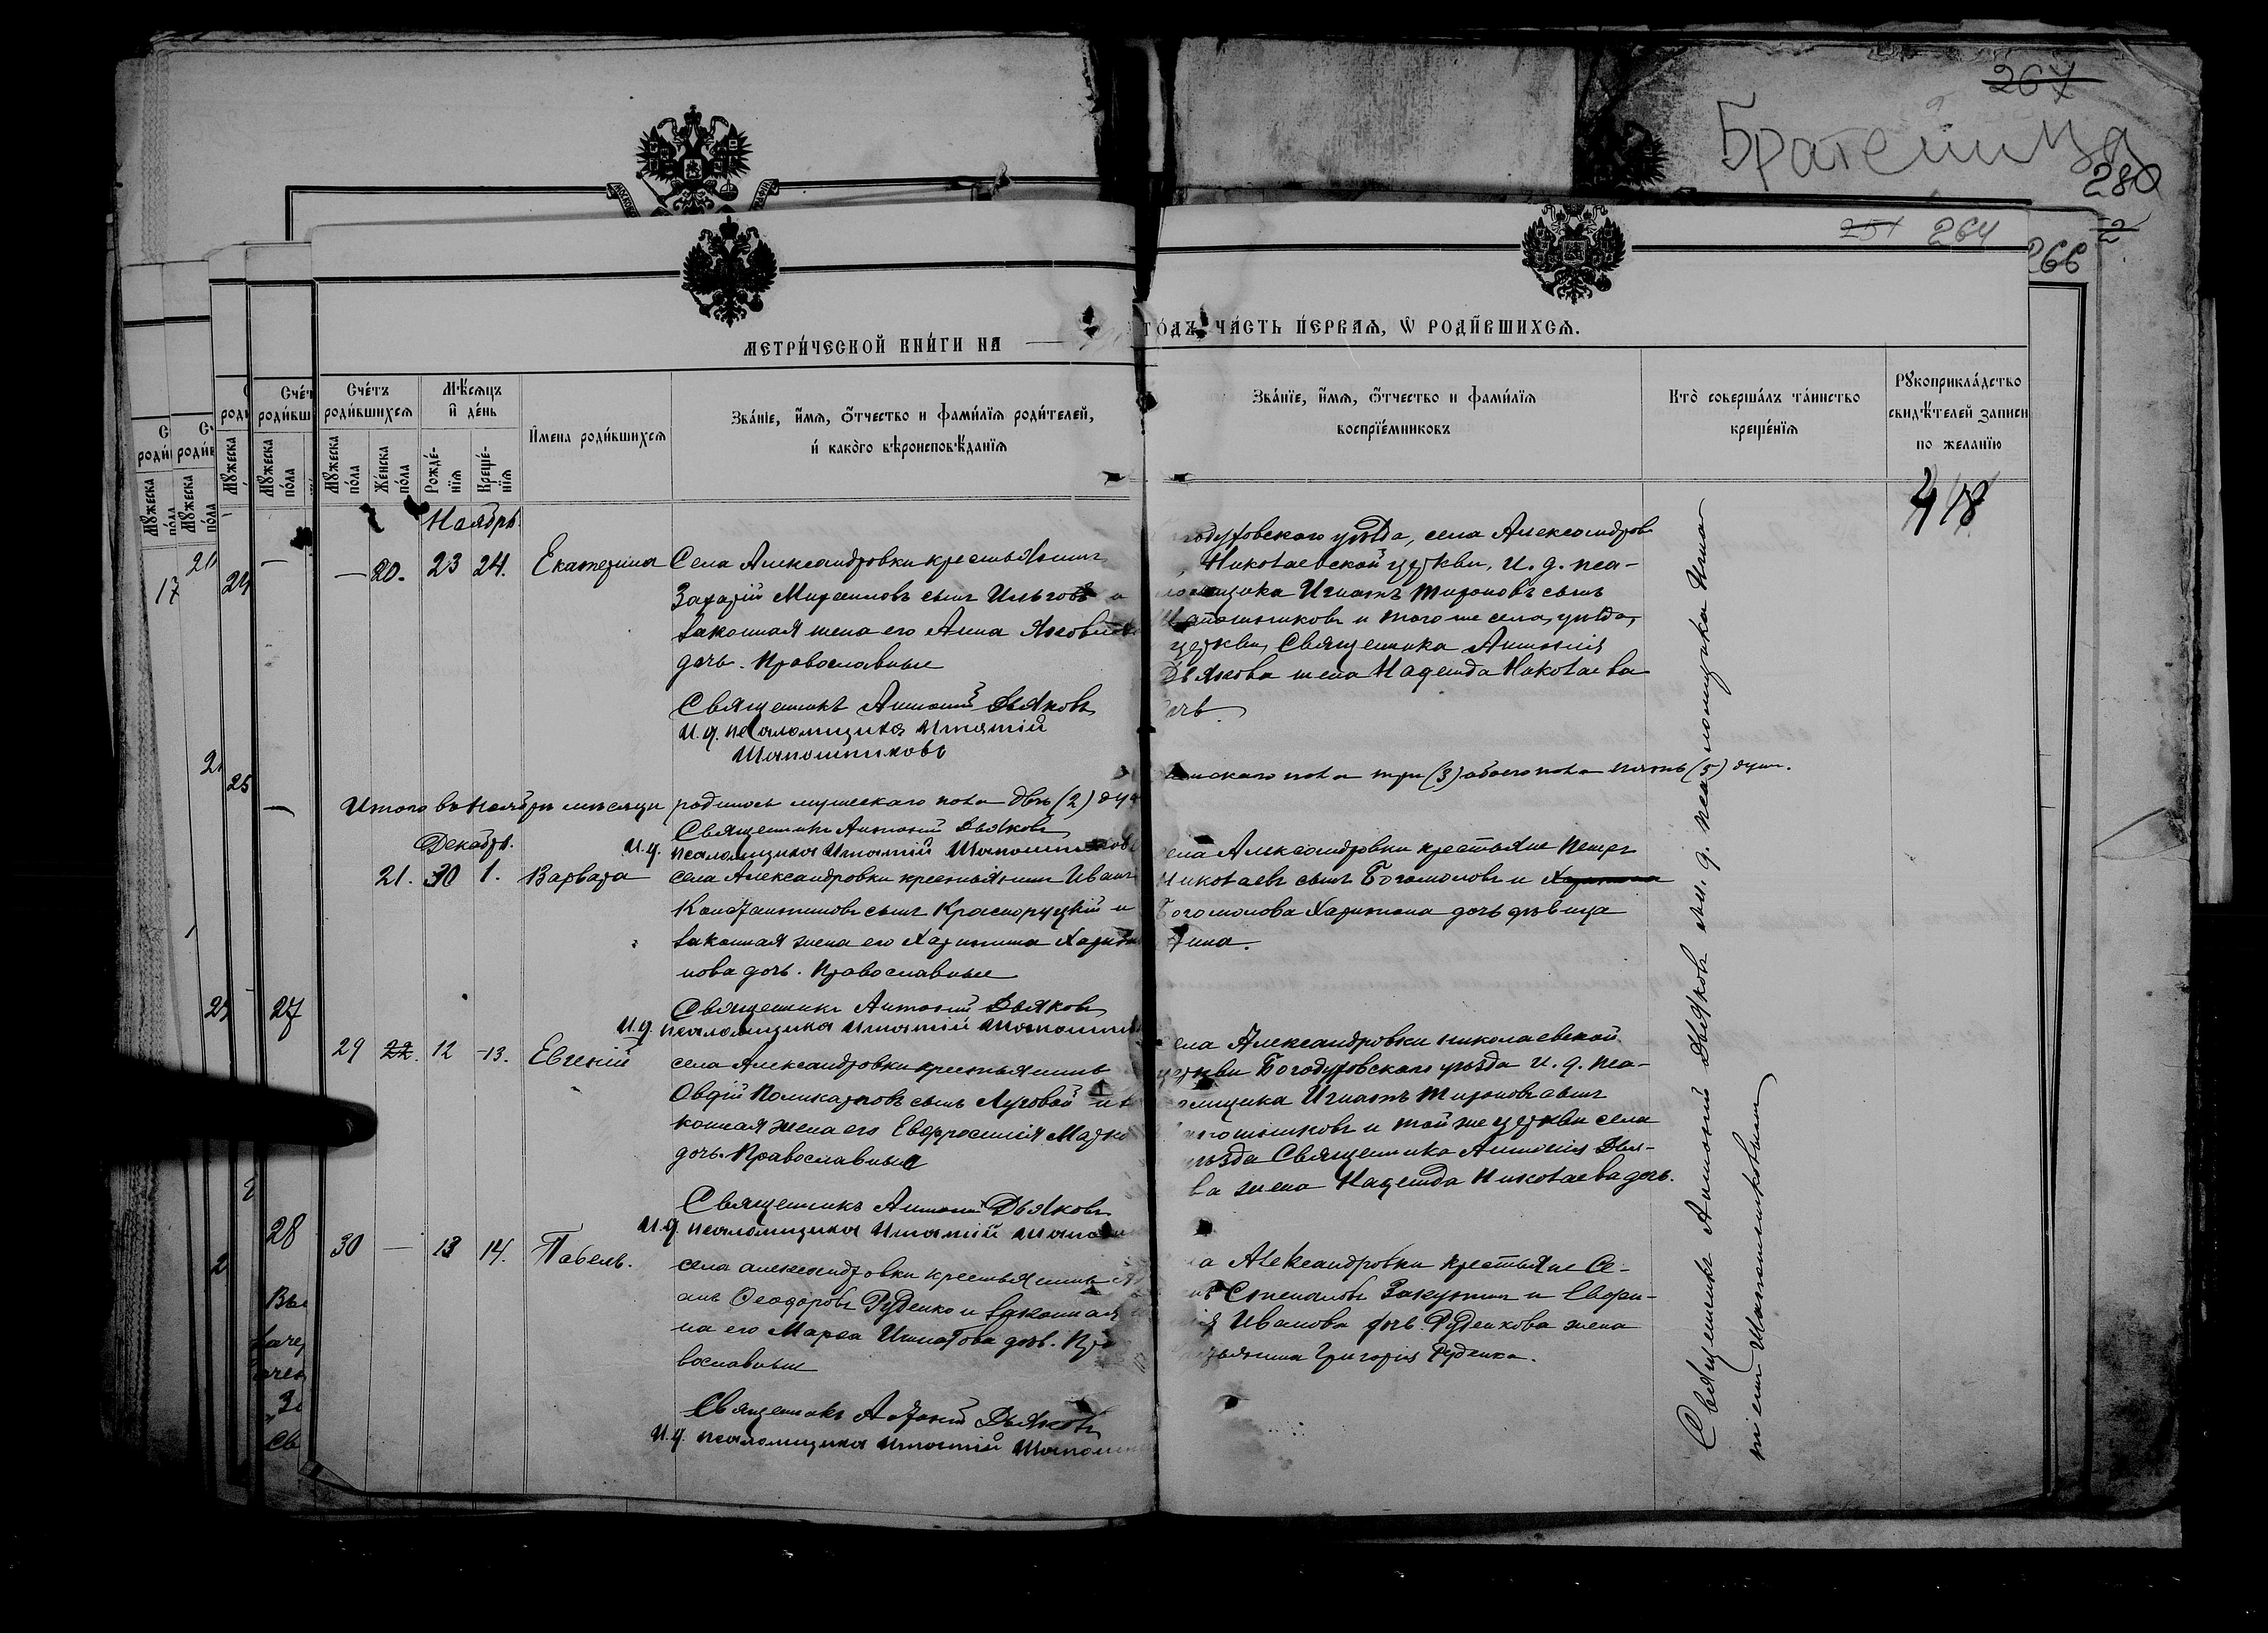 267
Братеница
280
2
251 264
266
МЕТРИЧЕСКОЙ КНИГИ НА
ГОДЪ ЧАСТЬ ПЕРВАЯ, Ѡ РОДИВШИХСЯ.
Счетъ родившихся
Мѣсяцъ и день
Имена родившихся
Званіе, имя, отчество и фамилія родителей,
и какого вѣроисповѣданія
Званіе, имя, отчество и фамилія
воспріемниковъ
Кто совершалъ таинство
крещенія
Рукоприкладство
свидѣтелей записи
по желанію
Мужеска пола
Женска пола
Рожденія
Крещенія
418
Ноябрь
— 20. 23 24. Екатерина
Села Александровки крестьянинъ
Захарій Михаиловъ сынъ и
законная жена его Анна Яковлева
дочь. Православные
Священникъ Антоній Дьяковъ
И.д. псаломщика Игнатій
Шапошниковъ
одуховскаго уѣзда, села Александров
Николаевской церкви, И. д. пса-
ломщика Игнатъ Тихоновъ сынъ
Шапошниковъ и того же села, уѣзда,
церкви, Священника Антонія
Дьякова жена Надежда Николаева
дочь.
Итого въ Ноябрѣ мѣсяцѣ родилось мужескаго пола двѣ (2) душ
женскаго пола три (3) обоего пола пять (5) душ.
Священникъ Антоній Дьяковъ
И.д. псаломщика Игнатій Шапошниковъ
Декабрь.
21. 30 1. Варвара
села Александровки крестьянинъ Иванъ
Константиновъ сынъ Красноруцкій и
законная жена его Харитина Харито
нова дочь. Православные
Священникъ Антоній Дьяковъ
И.д. псаломщика Игнатій Шапошник
села Александровки крестьяне Петръ
Николаевъ сынъ Богомоловъ и
Богомолова Харитона дочь дѣвица
Анна.
29 22. 12 13. Евгеній
села Александровки крестьянинъ
Овдій Поликарповъ сынъ Луговой и за
конная жена его Евфросинія Марко
дочь. Православные
Священникъ Антоній Дьяковъ
И.д. псаломщика Игнатій Шапошн
села Александровки Николаевской
церкви Богодуховскаго уѣзда И. д. пса-
ломщика Игнатъ Тихоновъ сынъ
Шапошниковъ и той же церкви села
уѣзда Священника Антонія Дья-
ва жена Надежда Николаева дочь.
30 — 13 14. Павелъ.
села александровки крестьянинъ
анъ Феодоровъ Руденко и законная
на его Марѳа Игнатова дочь. Пра
вославные
Священникъ Антоній Дьяковъ
И.д. псаломщика Игнатій Шапошн
а Александровки крестьяне Се-
нъ Степановъ и Евфи-
Иванова дочь Руденкова жена
крестьянина Григорія Руденка.
Священникъ Антоній Дьяковъ съ и. д. псаломщика Игна-
тіемъ Шапошниковымъ